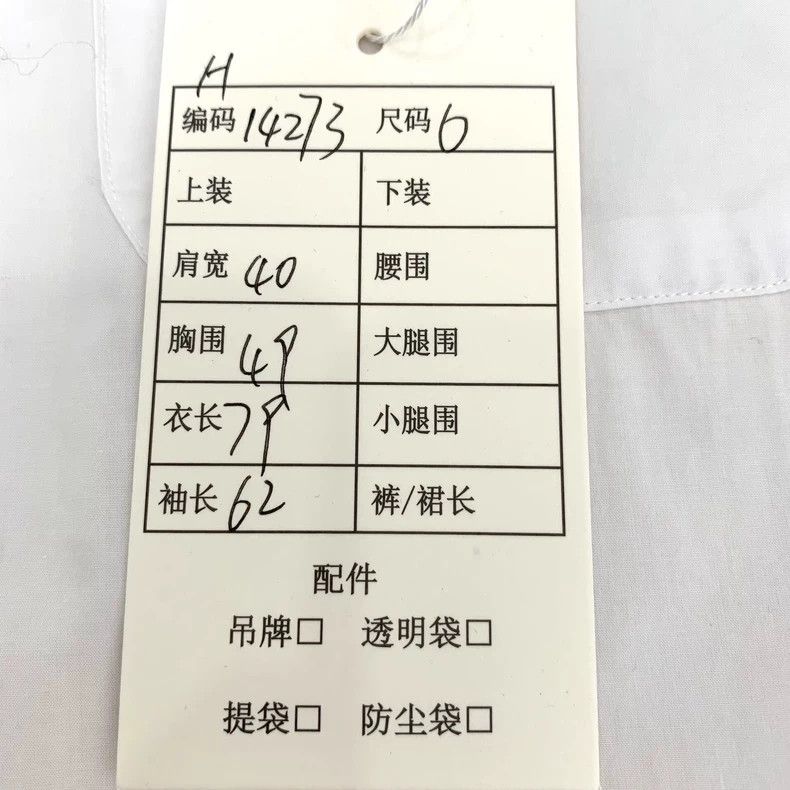 H
编码 14273 尺码 6
上装 下装
肩宽 40 腰围
胸围 49 大腿围
衣长 79 小腿围
袖长 62 裤/裙长
配件
吊牌□ 透明袋□
提袋□ 防尘袋□